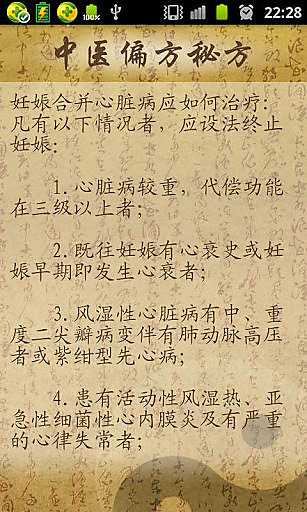 100%
22:28
中医偏方秘方
妊娠合并心脏病应如何治疗:
凡有以下情况者，应设法终止
妊娠:
1. 心脏病较重，代偿功能
在三级以上者;
2. 既往妊娠有心衰史或妊
娠早期即发生心衰者;
3. 风湿性心脏病有中、重
度二尖瓣病变伴有肺动脉高压
者或紫绀型先心病;
4. 患有活动性风湿热、亚
急性细菌性心内膜炎及有严重
的心律失常者;